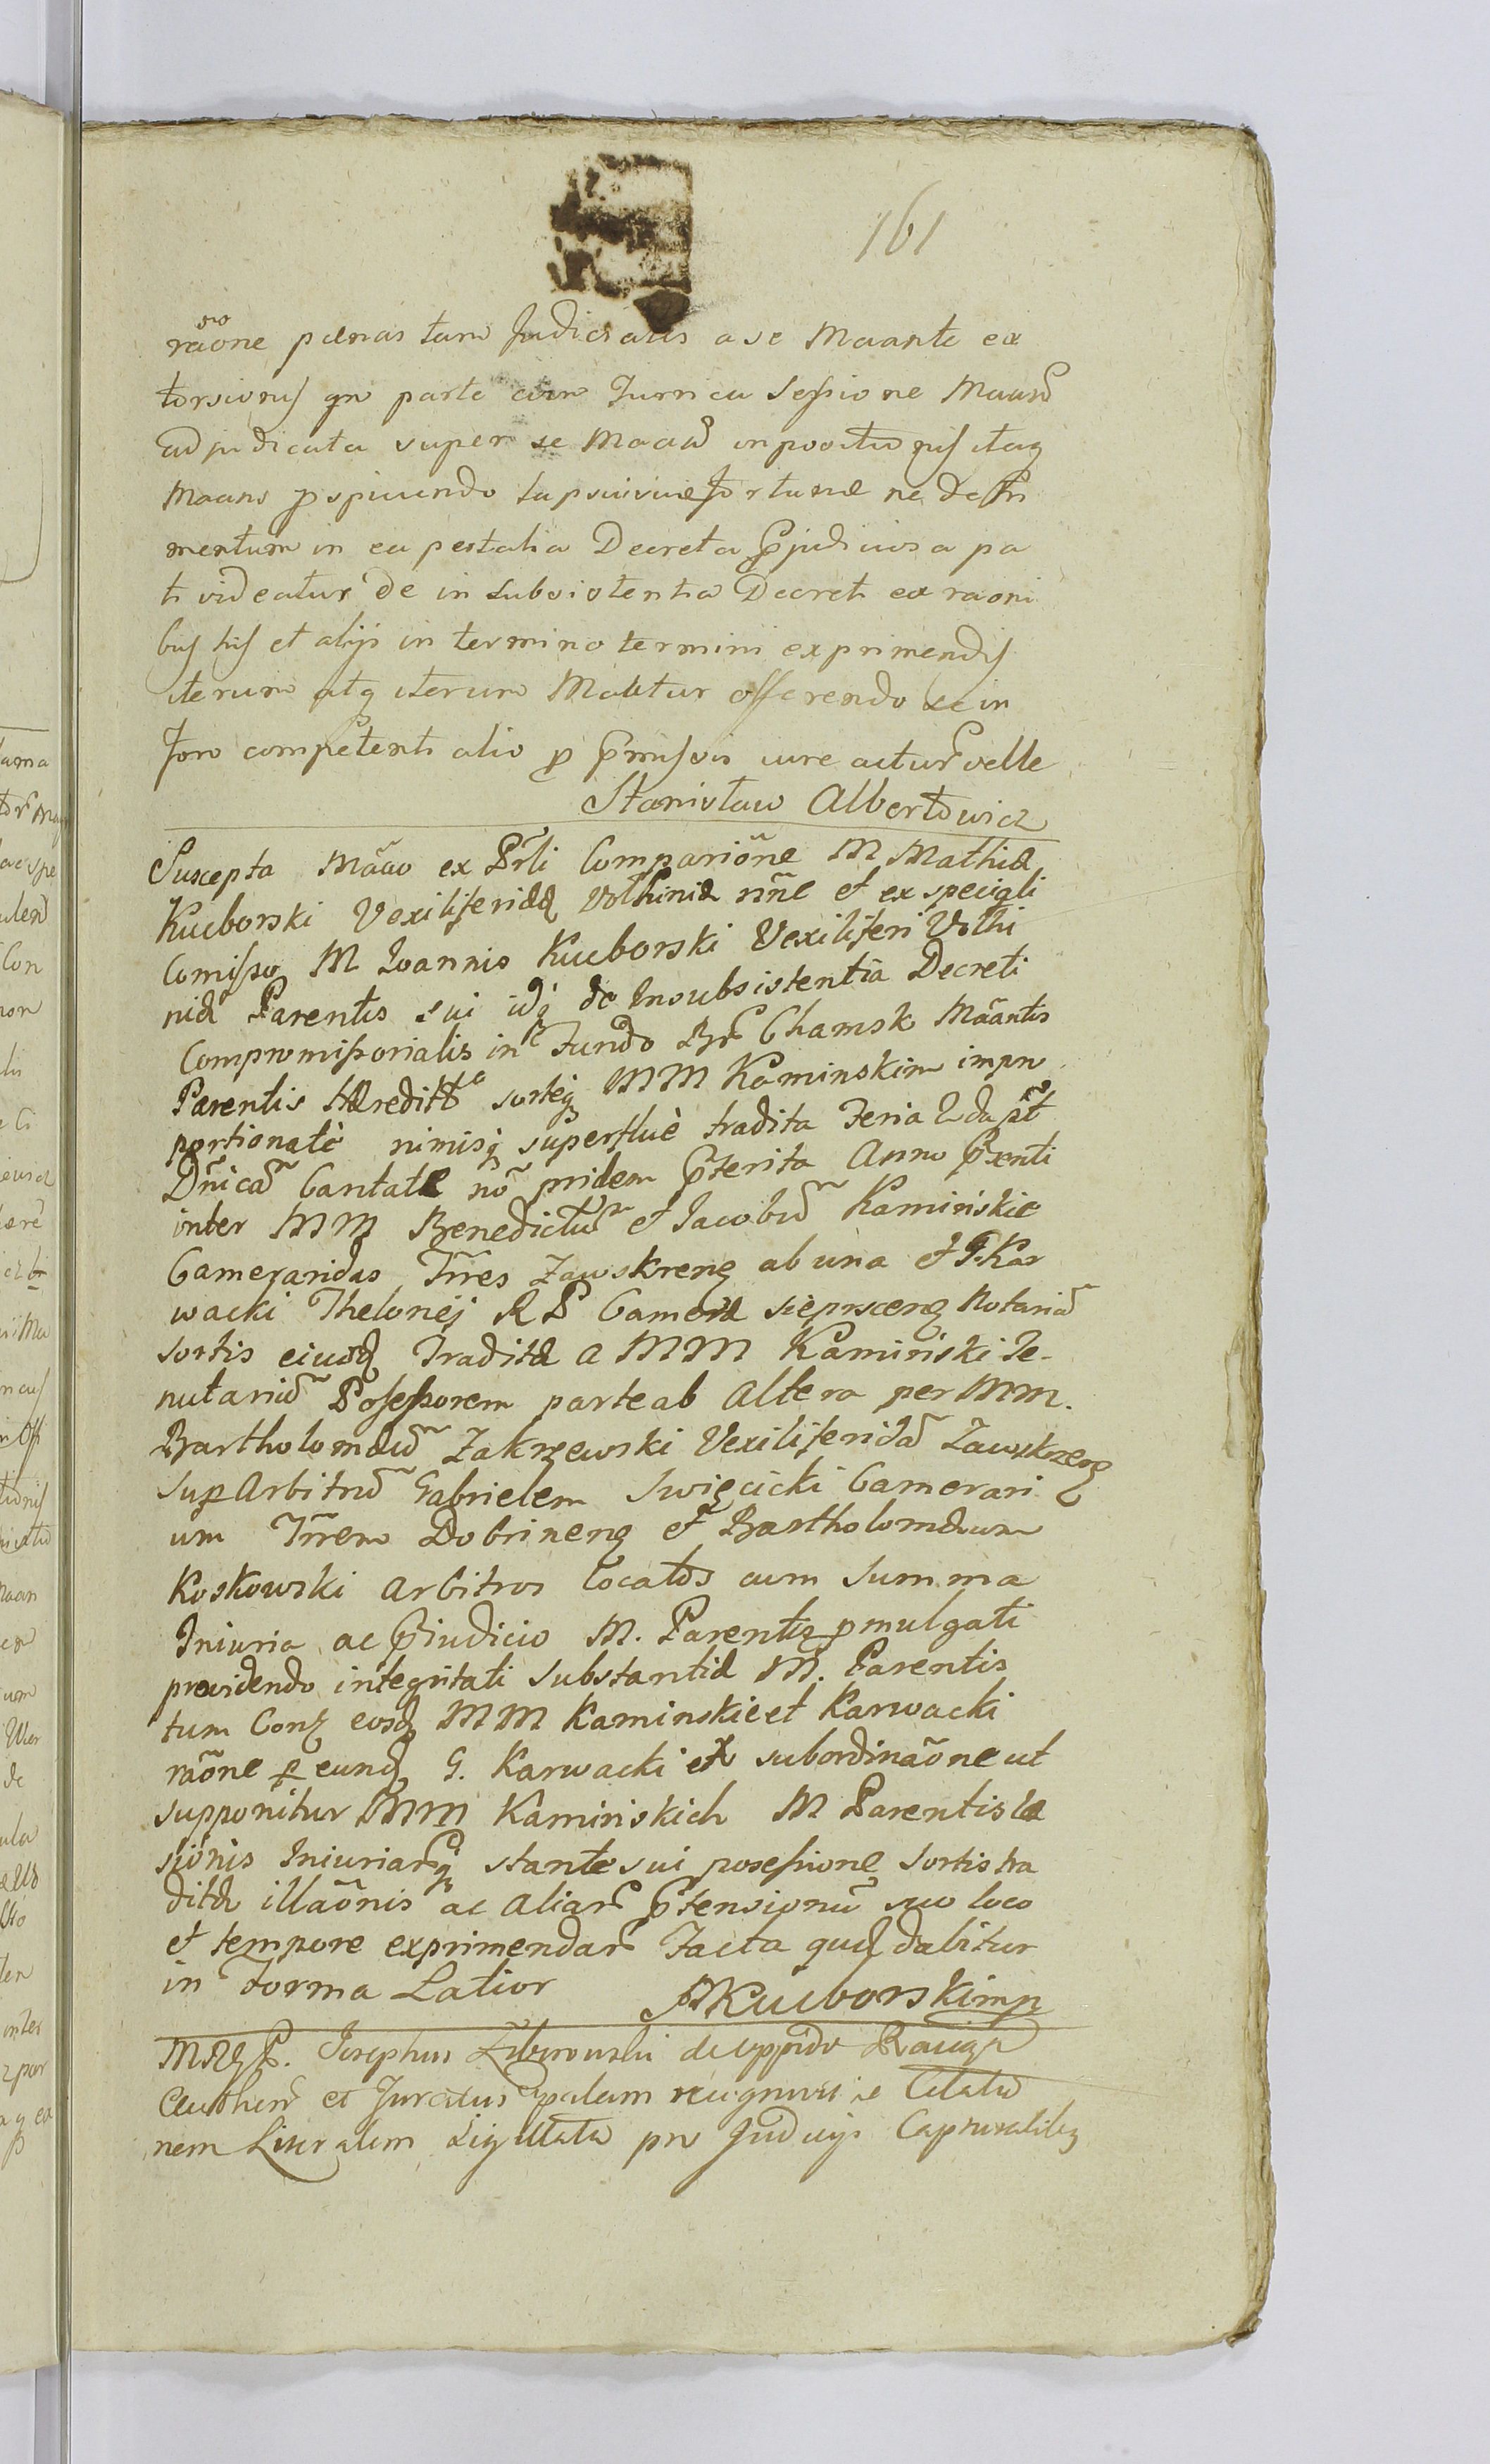 161
raõne pænas tam Judiciales a se Maante ex
torsionis qm parte cum Jurrica Sessione Maand
adjudicata super se Maand inpositionis itaq
Maans pspiciendo suæ fortunæ ne detri
mentum in ea per talia Decreta pjudiciosa pa
ti videatur de in subsistentia Decreti ex raoni
bus his et alijs in termino termini exprimendis
iterum atq iterum Maãtur offerendo se in
foro competenti alio p pmissis iure acturũ velle
Stanisław Albertowicz
Suscepta Mãao ex Prli Compariõne M Mathiæ
Kucborski Vexiliferidæ Volhiniæ nñe et ex speciali
Comisso M Joannis Kucborski Vexiliferi Volhi
niæ Parentis sui idq de Insubsistentia Decreti
Compromissorialis in Fundo Br Chamsk Mãantis
Parentis Hæreditto sorteq MM Kaminskim impro
portionatè nimisq superfluè tradita Feria 2da pst
Dñicã Cantate nõ pridem pterita Anno pxenti
inter MM Benedictũ et Jacobũ Kamińskie
Cameraridas Trres Zawskreng ab una et G Kar
wacki Thelonej R P Cameræ sieprsceng Notariũ
sortis eiusdq Traditæ a MM Kamiński Te-
nutariũ Possessorem parte ab altera per MM.
Bartholomæũ Zakrzewski Vexiliferidã Zawskrzeng
Sup Arbitrũ Gabrielem Swięcicki Camerari
um Trrem Dobrineng et Bartholomæum
Koskowski Arbitros locatos cum summa
Iniuria ac pjudicio M. Parentis pmulgati
providendo integritati Substantiæ M. Parentis
tum Conq eosdq MM Kaminskie et Karwacki
raõne p eundq G. Karwacki ex subordinaõne ut
supponitur MM Kamińskich M Parentis læ
sionis Iniuriarq stante sui possessione Sortis tra
ditæ illaõnis ac aliar ptensionũ suo loco
et tempore exprimendar Facta quæ dabitur
in Forma Latior
MKucborski mp
Josephus de oppido
Authen et Juratus palam recognovit se Citatio
nem Literalem Sigillatã pro Judicijs Capturalibq